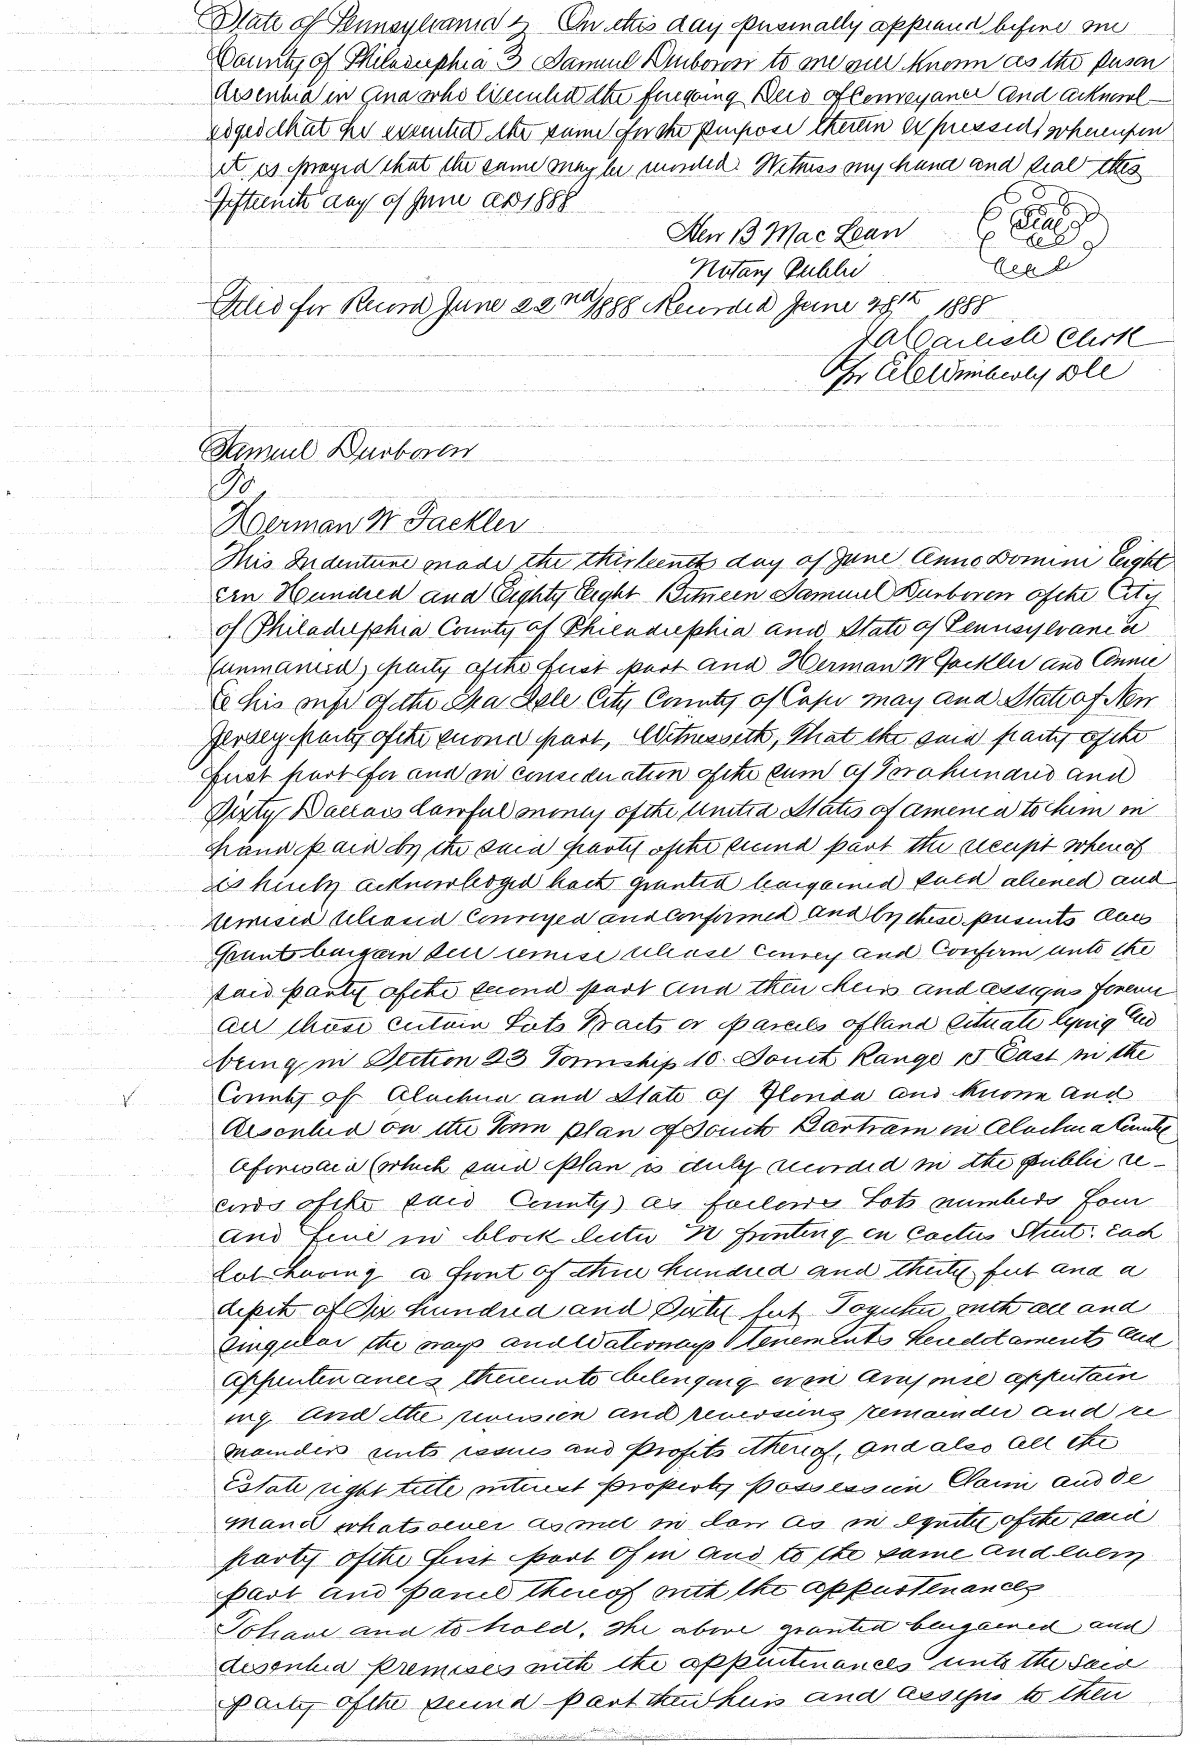 State of Pennsylvania } On this day personally appeared before me
County of Philadelphia } Samuel Durboron to me well known as the person
described in and who executed the foregoing Deed of Conveyance and acknowl-
edged that he executed the same for the purpose therein expressed, whereupon
it is prayed that the same may be recorded. Witness my hand and seal this
fifteenth day of June AD 1888
B Mac Lean
Seal
Notary Public
Filed for Record June 22nd 1888 Recorded June 28th 1888
J A Carlisle Clerk
Wimberly
Samuel Durboron
To
Herman W Fackler
This Indenture made the thirteenth day of June Anno Domini Eight
een Hundred and Eighty Eight Between Samuel Durboron of the City
of Philadelphia County of Philadelphia and State of Pennsylvania
(unmarried) party of the first part and Herman W Fackler and Annie
E his wife of the Sea Isle City County of Cape May and State of New
Jersey party of the second part, Witnesseth, That the said party of the
first part for and in consideration of the sum of Two hundred and
Sixty Dollars lawful money of the United States of America to him in
hand paid by the said party of the second part the receipt whereof
is hereby acknowledged hath granted bargained sold aliened and
remised released conveyed and confirmed and by these presents does
Grant bargain sell remise release convey and Confirm unto the
said party of the second part and their heirs and assigns forever
all those certain Lots Tracts or parcels of land situate lying and
being in Section 23 Township 10 South Range 18 East in the
County of Alachua and State of Florida and known and
described on the Town plan of South Bartram in Alachua County
aforesaid (which said plan is duly recorded in the public re-
cords of the said County) as follows Lots numbers four
and five in block letter N fronting on Cactus Street: each
lot having a front of three hundred and thirty feet and a
depth of Six hundred and Sixty feet Together with all and
singular the ways and Waterways tenements hereditaments and
appurtenances thereunto belonging or in anywise appertain
ing and the reversion and reversions remainder and re
mainders rents issues and profits thereof, and also all the
Estate right title interest property possession Claim and de
mand whatsoever as well in law as in equity of the said
party of the first part of in and to the same and every
part and parcel thereof with the appurtenances
To have and to hold, the above granted bargained and
described premises with the appurtenances unto the said
party of the second part their heirs and assigns to their